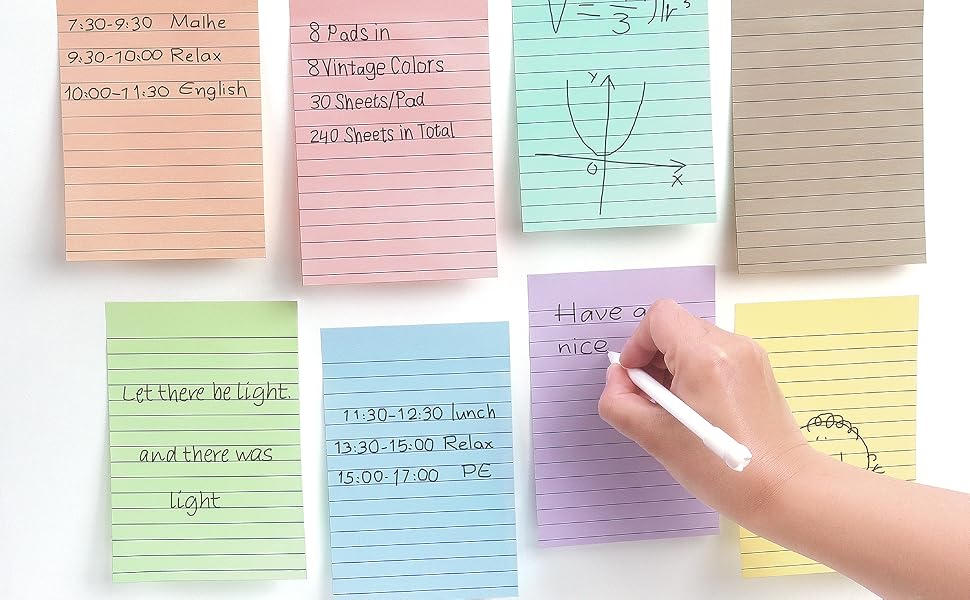 7:30-9:30 Malhe
9:30-10:00 Relax
10:00-11:30 English
8 Pads in
8 Vintage Colors
30 Sheets/Pad
240 Sheets in Total
V = 3 πr³
y
0
x
Let there be light.
and there was
light
11:30-12:30 lunch
13:30-15:00 Relax
15:00-17:00 PE
Have a
nice